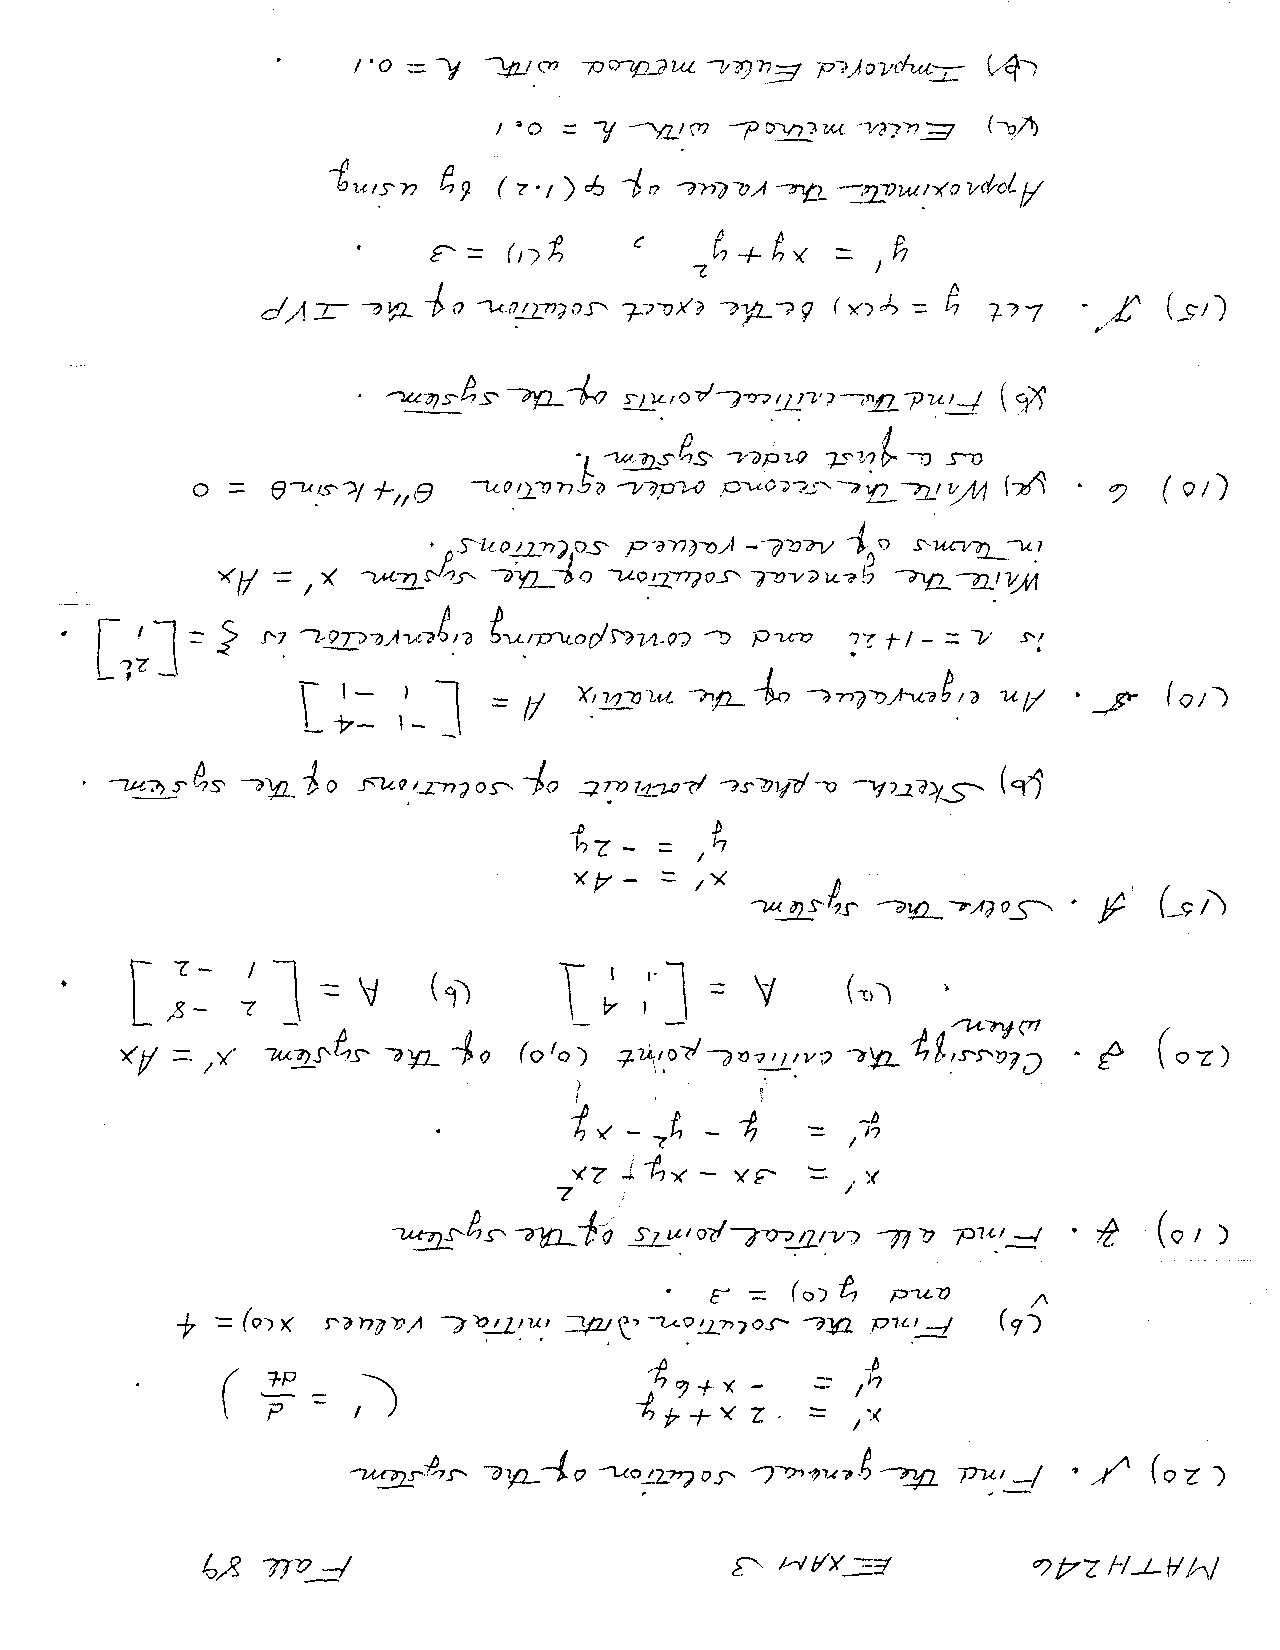 MATH 246 EXAM 3 Fall 89
(20) 1. Find the general solution of the system
x' = 2x + 4y
y' = -x + 6y ( ' = d/dt ) .
(b) Find the solution with initial values x(0) = 4
and y(0) = 3 .
(10) 2. Find all critical points of the system
x' = 3x - xy + 2x²
y' = y - y² - xy .
(20) 3. Classify the critical point (0,0) of the system x' = Ax
when
(a) A = [1 4; 1 1] (b) A = [2 -8; 1 -2] .
(15) 4. Solve the system
x' = -4x
y' = -2y
(b) Sketch a phase portrait of solutions of the system .
(10) 5. An eigenvalue of the matrix A = [-1 -4; 1 -1]
is r = -1+2i and a corresponding eigenvector is ξ = [2i; 1] .
Write the general solution of the system x' = Ax
in terms of real-valued solutions .
(10) 6. (a) Write the second order equation θ'' + k sin θ = 0
as a first order system .
(b) Find the critical points of the system .
(15) 7. Let y = φ(x) be the exact solution of the IVP
y' = xy + y² , y(1) = 3 .
Approximate the value of φ(1.2) by using
(a) Euler method with h = 0.1
(b) Improved Euler method with h = 0.1 .